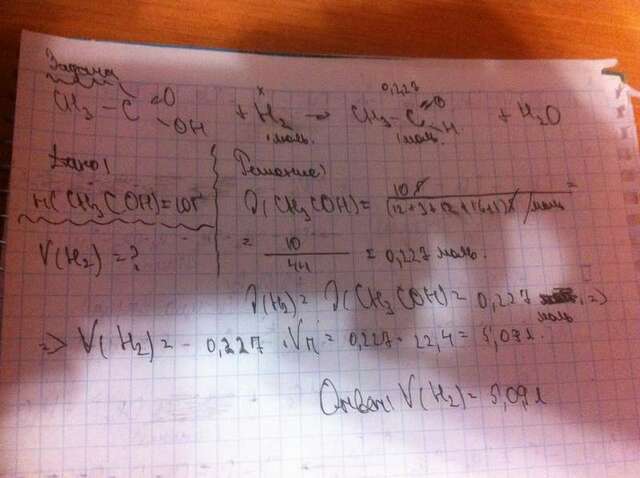 Задача
CH₃ – C =O –OH + H₂ → CH₃ – C =O –H + H₂O
x 1 моль. 0,227 1 моль.
Дано:
m(CH₃COH) = 10г
V(H₂) = ?
Решение:
ν(CH₃COH) = 10 г / (12+3+12+16+1) г/моль =
= 10/44 = 0,227 моль.
ν(H₂) = ν(CH₃COH) = 0,227 моль. =>
=> V(H₂) = 0,227 · Vn = 0,227 · 22,4 = 5,07 л.
Ответ: V(H₂) = 5,09 л